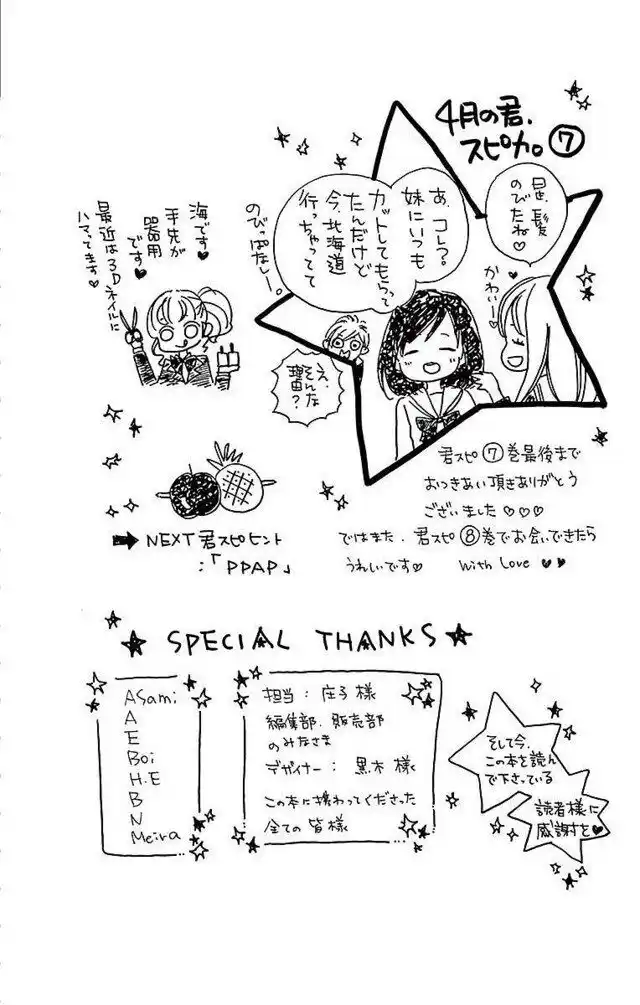 4月の君、
スピカ。⑦
星、髪
のびたね♡
かわいー♡
あ、コレ?
妹にいつも
カットしてもらって
たんだけど
今、北海道
行っちゃってて
のびっぱなしー。
え、
そんな
理由?
海です♥
手先が
器用
です♥
最近は3Dネイルに
ハマってます♥
君スピ⑦巻最後まで
おつきあい頂きありがとう
ございました♡♡♡
ではまた、君スピ⑧巻でお会いできたら
うれしいです♡ with Love ♥♥
➡ NEXT君スピヒント
:「PPAP」
★ SPECIAL THANKS ★
Asami
A
E
Boi
H.E
B
N
Meira
担当:庄子様
編集部、販売部
のみなさま
デザイナー:黒木様
この本に携わってくださった
全ての皆様
そして今、
この本を読ん
で下さっている
読者様に
感謝を♥